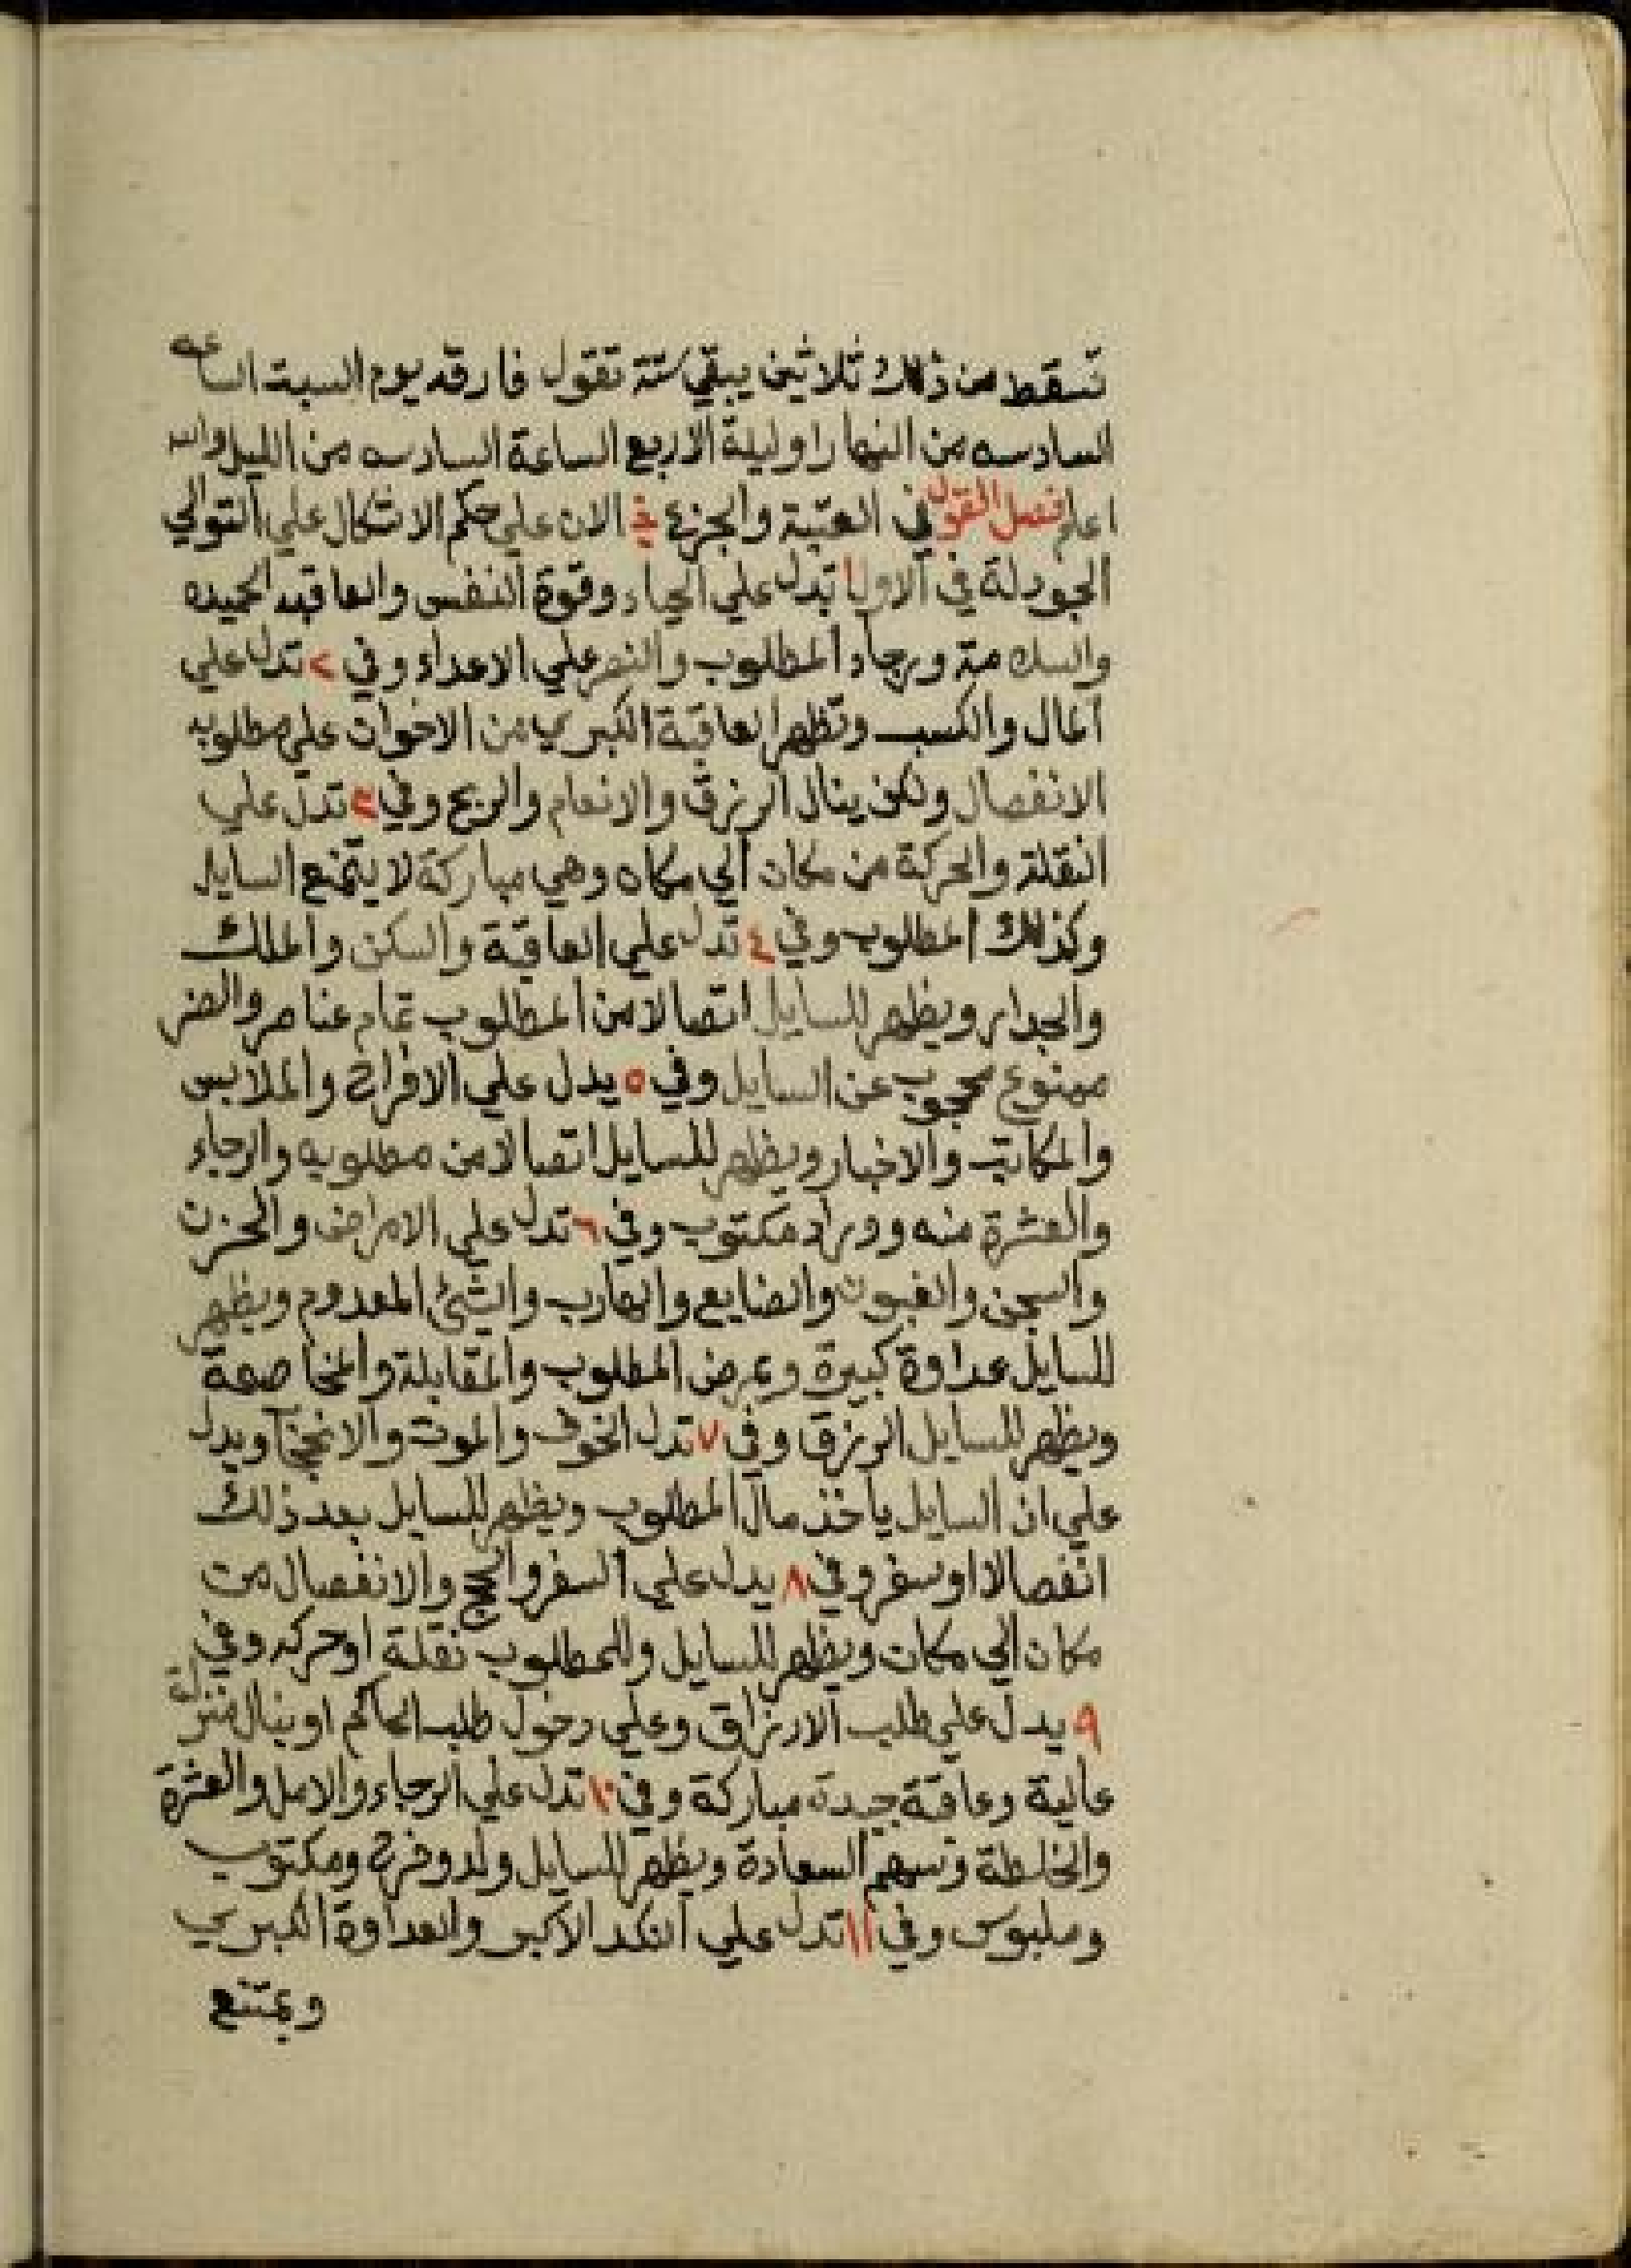 تسقط من ذلك ثلاثين يبقي ستة تقول فارقه يوم السبت الساعه
السادسه من النهار اوليلة الاربع الساعة السادسه من الليل والله
اعلم فصل القول في العتبة والجزع في الان علي حكم الاشكال علي التوالي
الجودلة في الاول ١ تدل علي الحياء وقوة النفس والعاقبه الحميده
والسلامة ورجاء المطلوب والنصر علي الاعداء وفي ٢ تدل علي
المال والكسب وتظهر العاقبة الكبري من الاخوان علي مطلوبه
الانفصال ولكن ينال الرزق والانعام والربح وفي ٣ تدل علي
النقلة والحركة من مكان الي مكان وهي مباركة لا يتمنع السايل
وكذلك المطلوب وفي ٤ تدل علي العاقبة والسكن والملك
والجدار ويظهر للسايل اتصالا من المطلوب تمام عناصر والضر
ممنوع محجوب عن السايل وفي ٥ يدل علي الافراح والملابس
والمكاتبة والاخبار ويظهر للسايل اتصالا من مطلوبه والرجاء
والعشرة منه وورراد مكتوب وفي ٦ تدل علي الامراض والحزن
والسجن والغبون والضايع والهارب والشئ المعدوم ويظهر
للسايل عداوة كبيرة ويمرض المطلوب والمقابلة والمخاصمة
ويظهر للسايل الرزق وفي ٧ تدل الخوف والموت ويدل
علي ان السايل ياخذ مال المطلوب ويظهر للسايل بعد ذلك
انفصالا اوسفر وفي ٨ يدل علي السفر والحج والانفصال من
مكان الي مكان ويظهر للسايل وللمطلوب نقلة اوحركه وفي
٩ يدل علي طلب الارزاق وعلي دخول طلب الحاكم اوينال منزلة
عالية وعاقبة جيدة مباركة وفي ١٠ تدل علي الرجاء والامل والعشرة
والخلطة وسهم السعادة ويظهر للسايل ولد وفرح ومكتوب
وملبوس وفي ١١ تدل علي النكد الاكبر والعداوة الكبري
ويمتنع